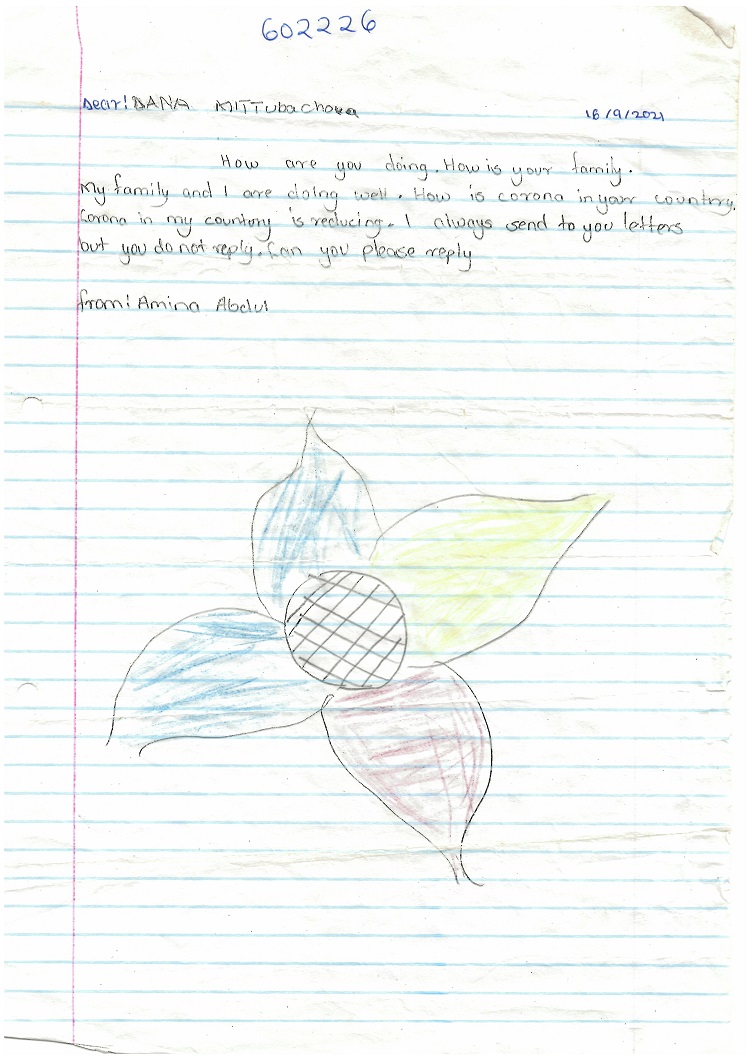 602226
Dear! DANA MITTubachova 16/9/2021
How are you doing. How is your family.
My family and I are doing well. How is corona in your country.
Corona in my country is reducing. I always send to you letters
but you do not reply. Can you please reply
from: Amina Abdul